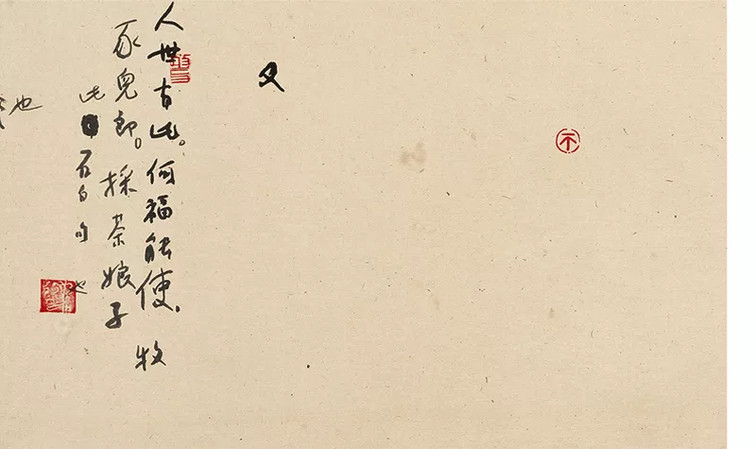 不
又
人世有此。何福能使。牧
豕兒郎。採茶娘子
此石白句也
也